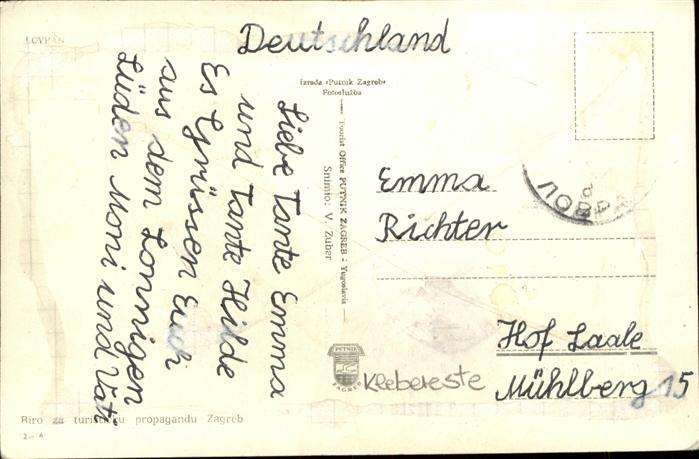 Deutschland
Liebe Tante Emma
und Tante Hilde
Es Grüssen Euch
aus dem Sonnigen
Lüden Moni und Vati
Izrada »Putnik Zagreb«
Fotoslužba
Tourist Office PUTNIK ZAGREB - Yugoslavia
Snimio: V. Zuber
PUTNIK
ZAGREB
Emma
Richter
Hof Saale
Mühlberg 15
Klebereste
Biro za turističku propagandu Zagreb